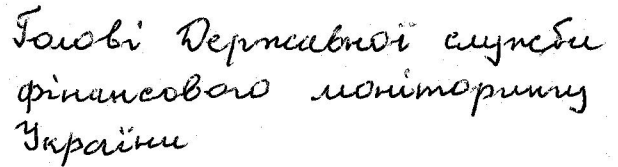 Голові Державної служби
фінансового моніторингу
України